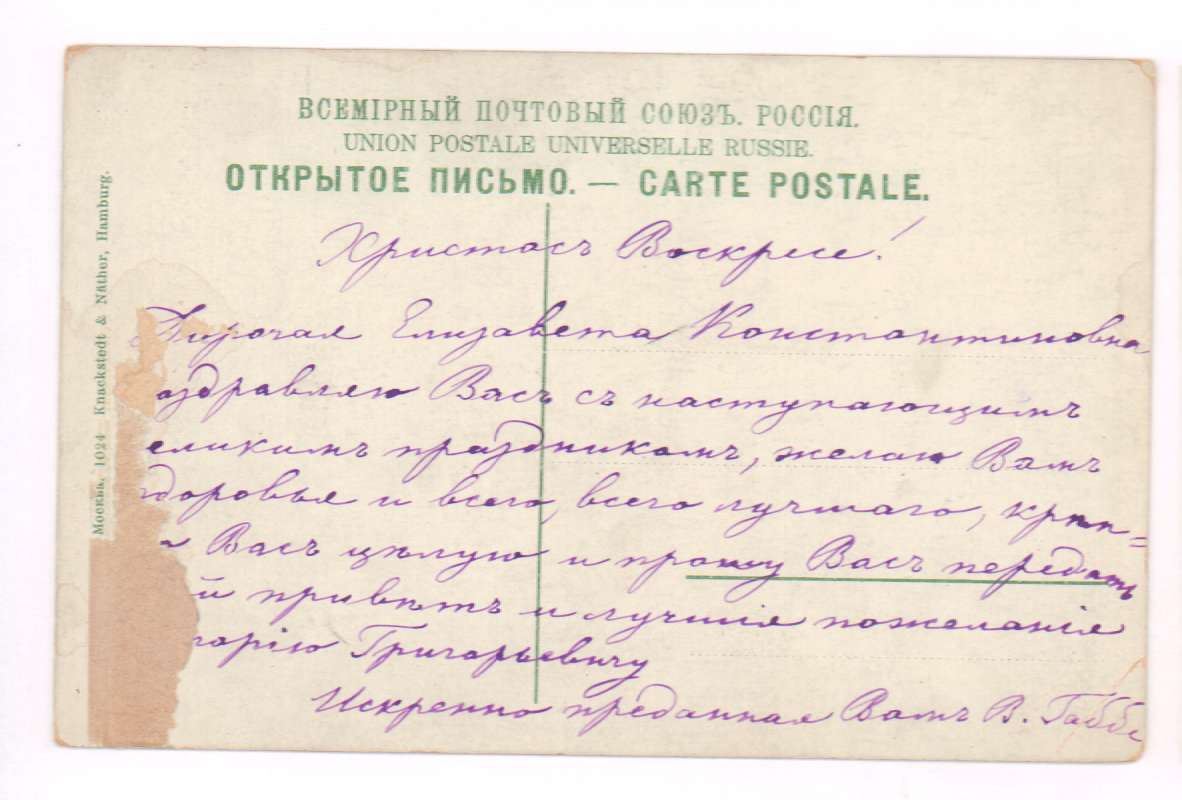 ВСЕМІРНЫЙ ПОЧТОВЫЙ СОЮЗЪ. РОССІЯ.
UNION POSTALE UNIVERSELLE RUSSIE.
ОТКРЫТОЕ ПИСЬМО. — CARTE POSTALE.
Москва, 1024 Knackstedt & Näther, Hamburg.
Христосъ Воскресе!
Дорогая Елизавета Константиновна
оздравляю Васъ съ наступающимъ
еликимъ праздникомъ, желаю Вамъ
здоровья и всего, всего лучшаго, крѣп=
о Васъ цѣлую и прошу Васъ передать
й привѣтъ и лучшія пожеланія
горію Григорьевичу
Искренно преданная Вамъ В.